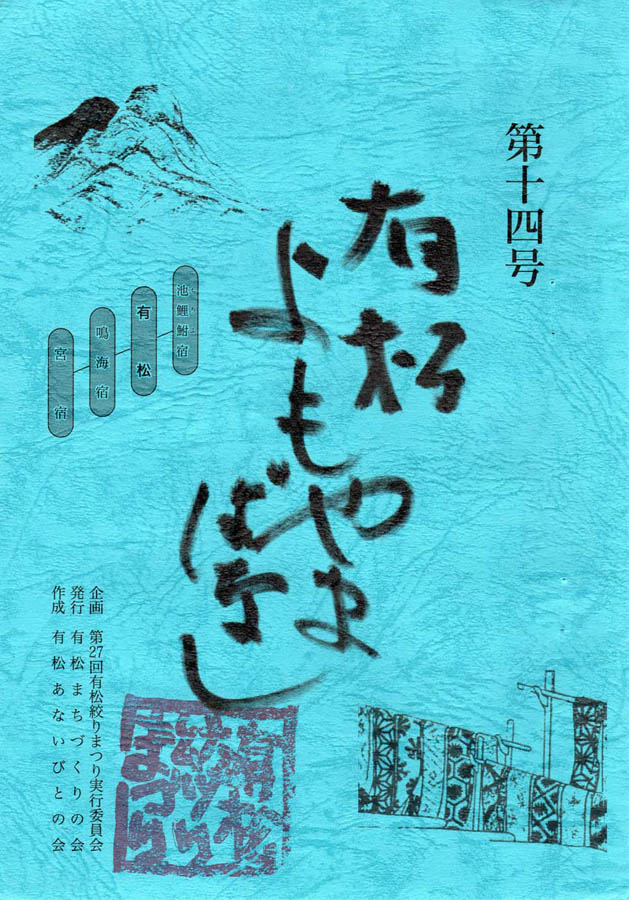 第十四号
有松
よもやま
ばなし
池鯉鮒宿
有松
鳴海宿
宮宿
企画 第27回有松絞りまつり実行委員会
発行 有松まちづくりの会
作成 有松あないびとの会
有松
絞り
まつり